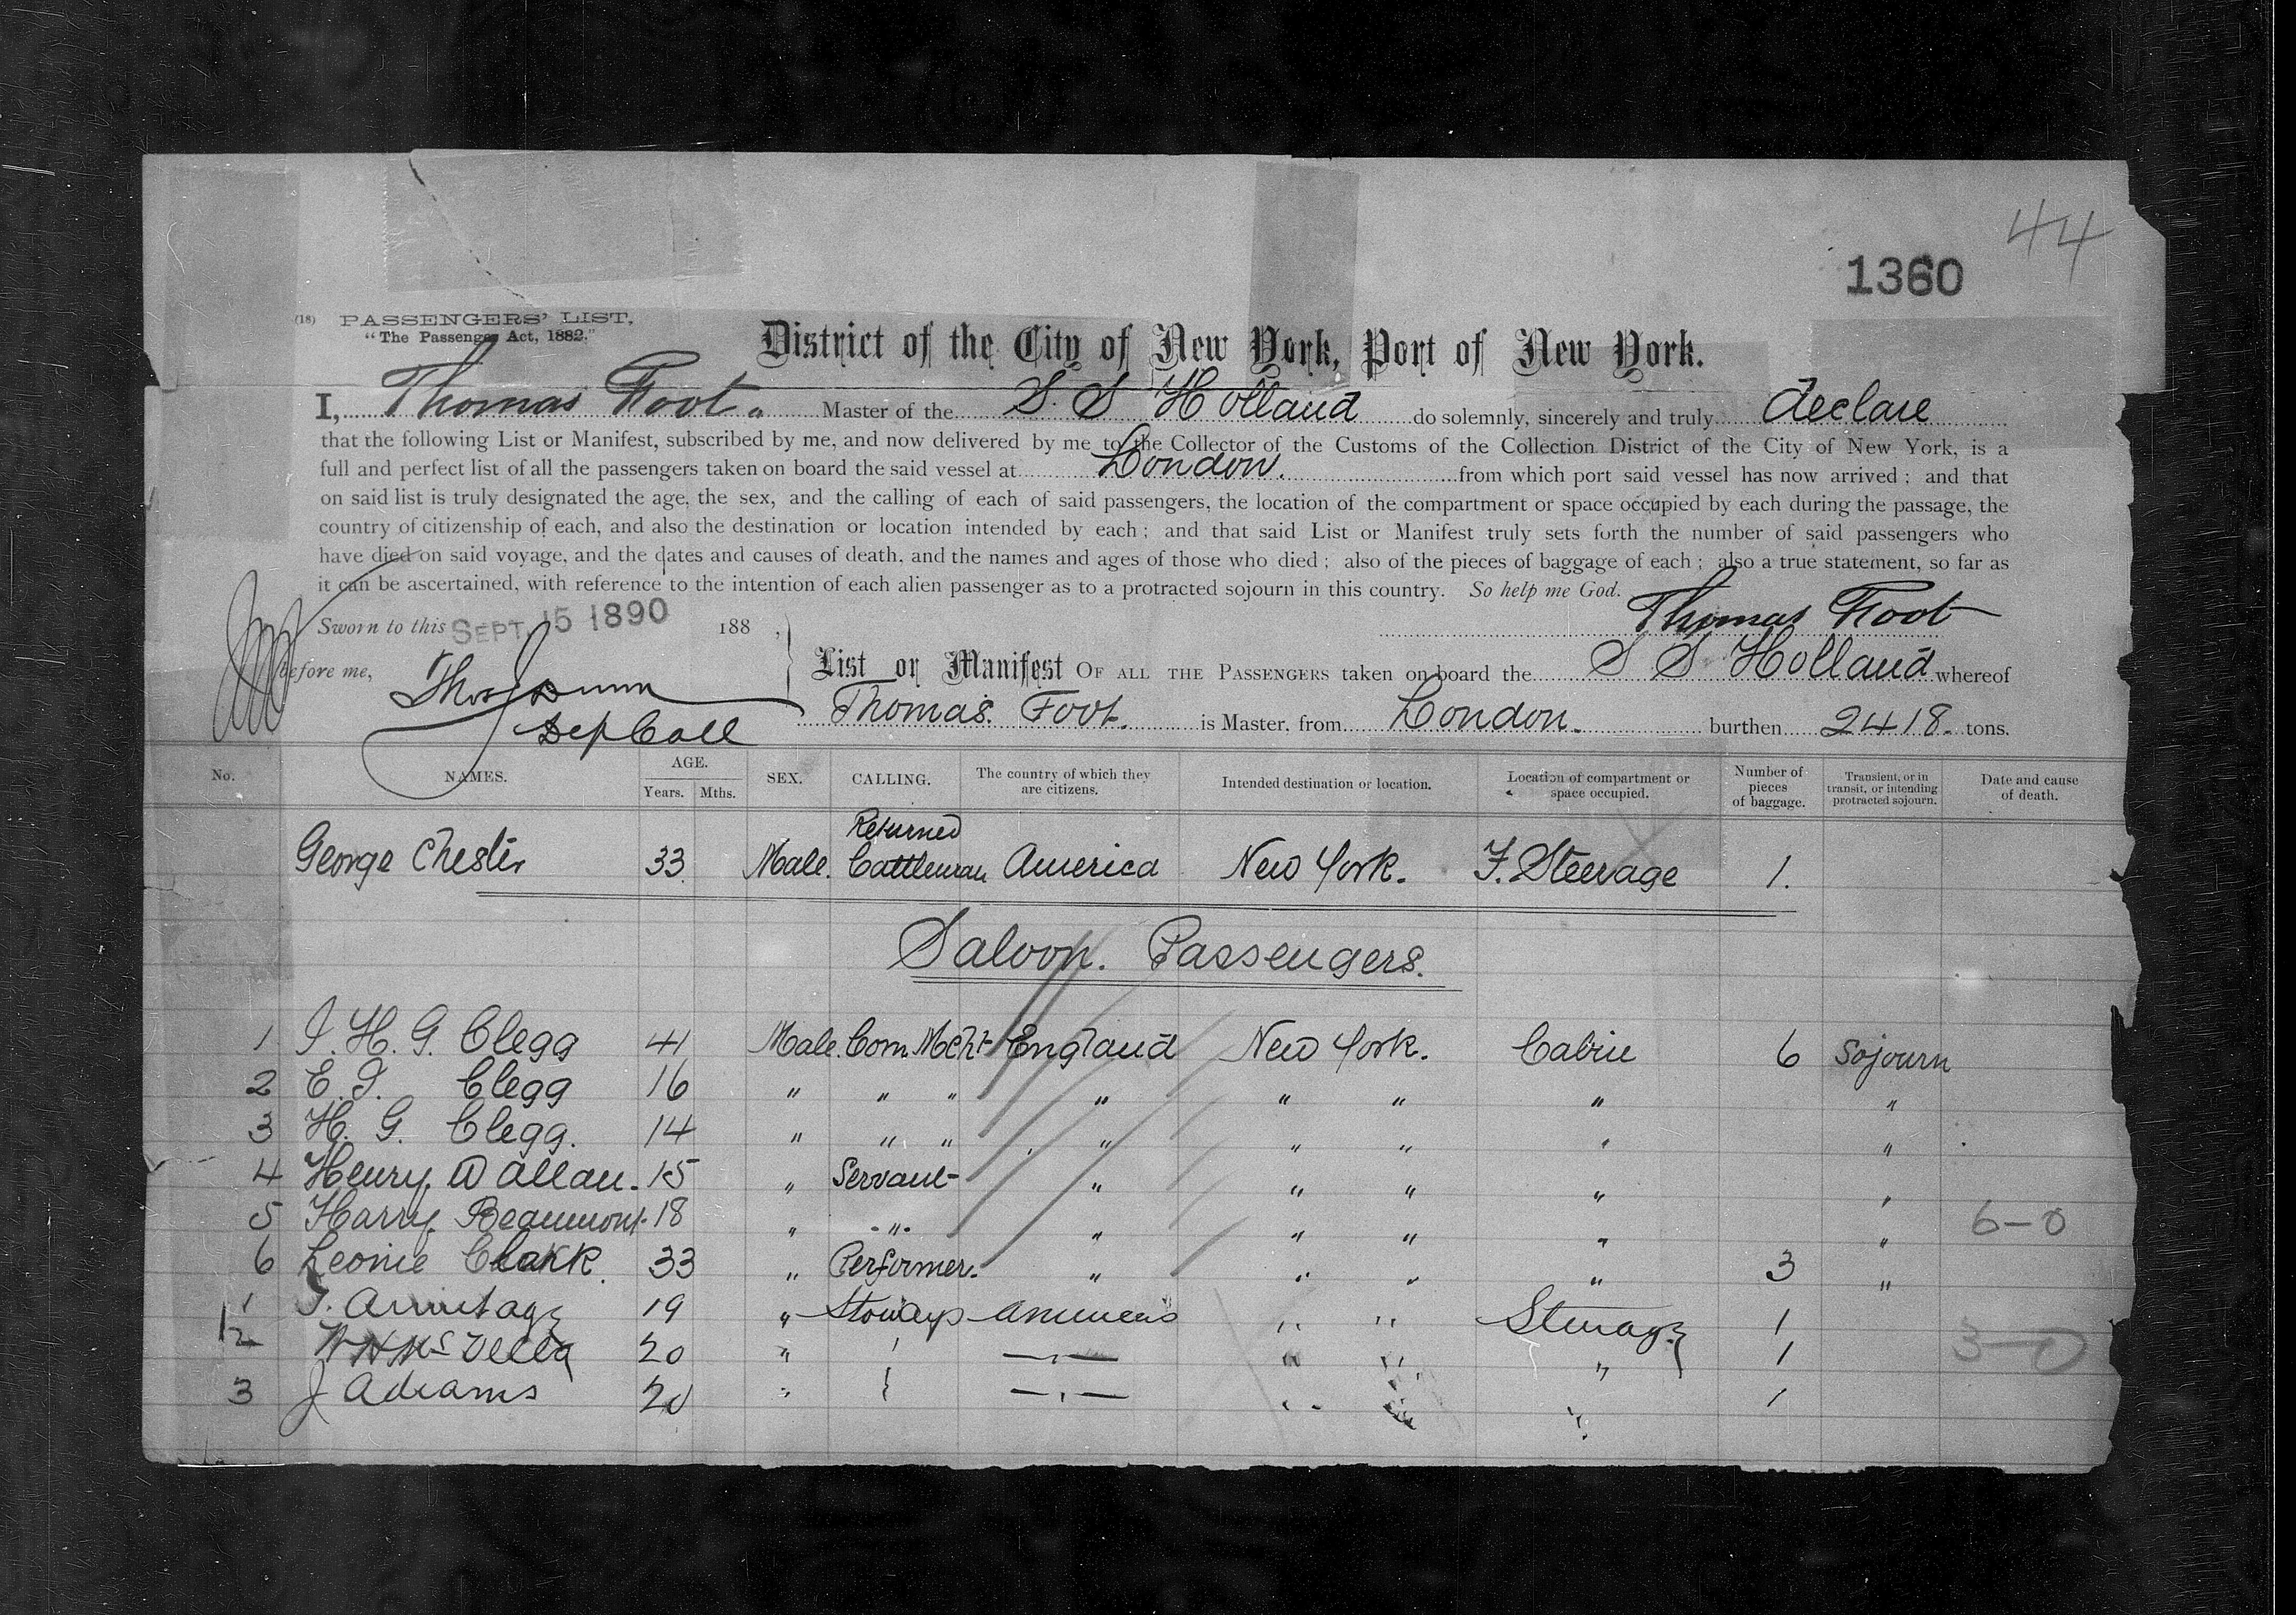 44
1360
(18) PASSENGERS' LIST.
"The Passenger Act, 1882."
District of the City of New York, Port of New York.
I, Thomas Foot. Master of the S. S Holland do solemnly, sincerely and truly declare
that the following List or Manifest, subscribed by me, and now delivered by me to the Collector of the Customs of the Collection District of the City of New York, is a
full and perfect list of all the passengers taken on board the said vessel at London. from which port said vessel has now arrived; and that
on said list is truly designated the age, the sex, and the calling of each of said passengers, the location of the compartment or space occupied by each during the passage, the
country of citizenship of each, and also the destination or location intended by each; and that said List or Manifest truly sets forth the number of said passengers who
have died on said voyage, and the dates and causes of death, and the names and ages of those who died; also of the pieces of baggage of each; also a true statement, so far as
it can be ascertained, with reference to the intention of each alien passenger as to a protracted sojourn in this country. So help me God.
Sworn to this SEPT. 15 1890 188 , Thomas Foot
before me, Thos Dunn List or Manifest OF ALL THE PASSENGERS taken on board the S S Holland whereof
Dep Coll Thomas. Foot. is Master, from London. burthen 2418. tons.
No. NAMES. AGE. Years. Mths. SEX. CALLING. The country of which they are citizens. Intended destination or location. Location of compartment or space occupied. Number of pieces of baggage. Transient, or in transit, or intending protracted sojourn. Date and cause of death.
George Chester 33 Male. Returned Cattleman America New York. F. Steerage 1.
Saloon. Passengers.
1 J. H. G. Clegg 41 Male. Corn Mcht England New York. Cabin 6 Sojourn
2 E. J. Clegg 16 " " " " " " " "
3 H. G. Clegg. 14 " " " " " " " "
4 Henry Wallan. 15 " Servant " " " " "
5 Harry Beaumont. 18 " " " " " " " 6-0
6 Leonie Clark. 33 " Performer. " " " " 3 "
1 J. Armitage 19 " Stoways " " Steerage 1
2 20 " " " " 1 3-0
3 J Adams 20 " " " " 1